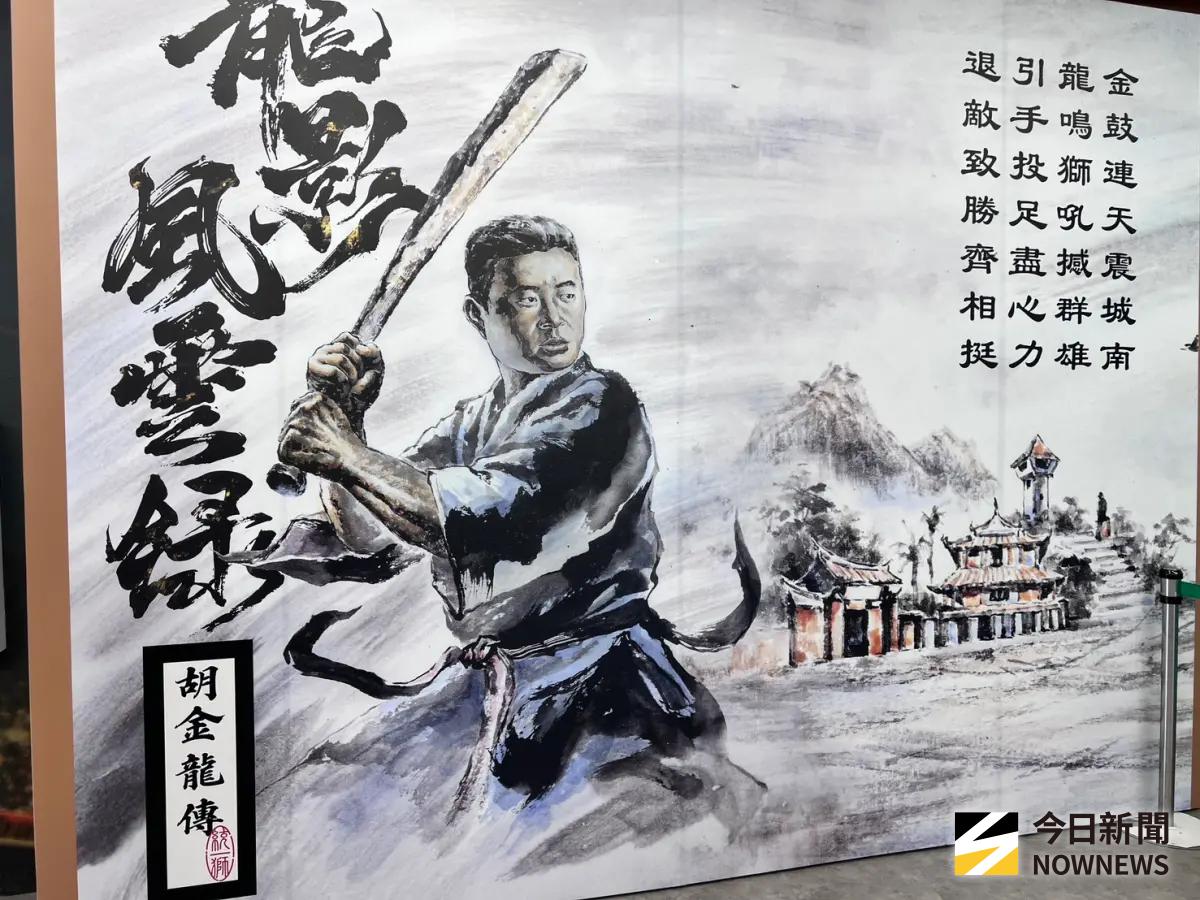 龍影
風雲錄
胡金龍傳
統一獅
金鼓連天震城南
龍鳴獅吼撼群雄
引手投足盡心力
退敵致勝齊相挺
今日新聞
NOWNEWS